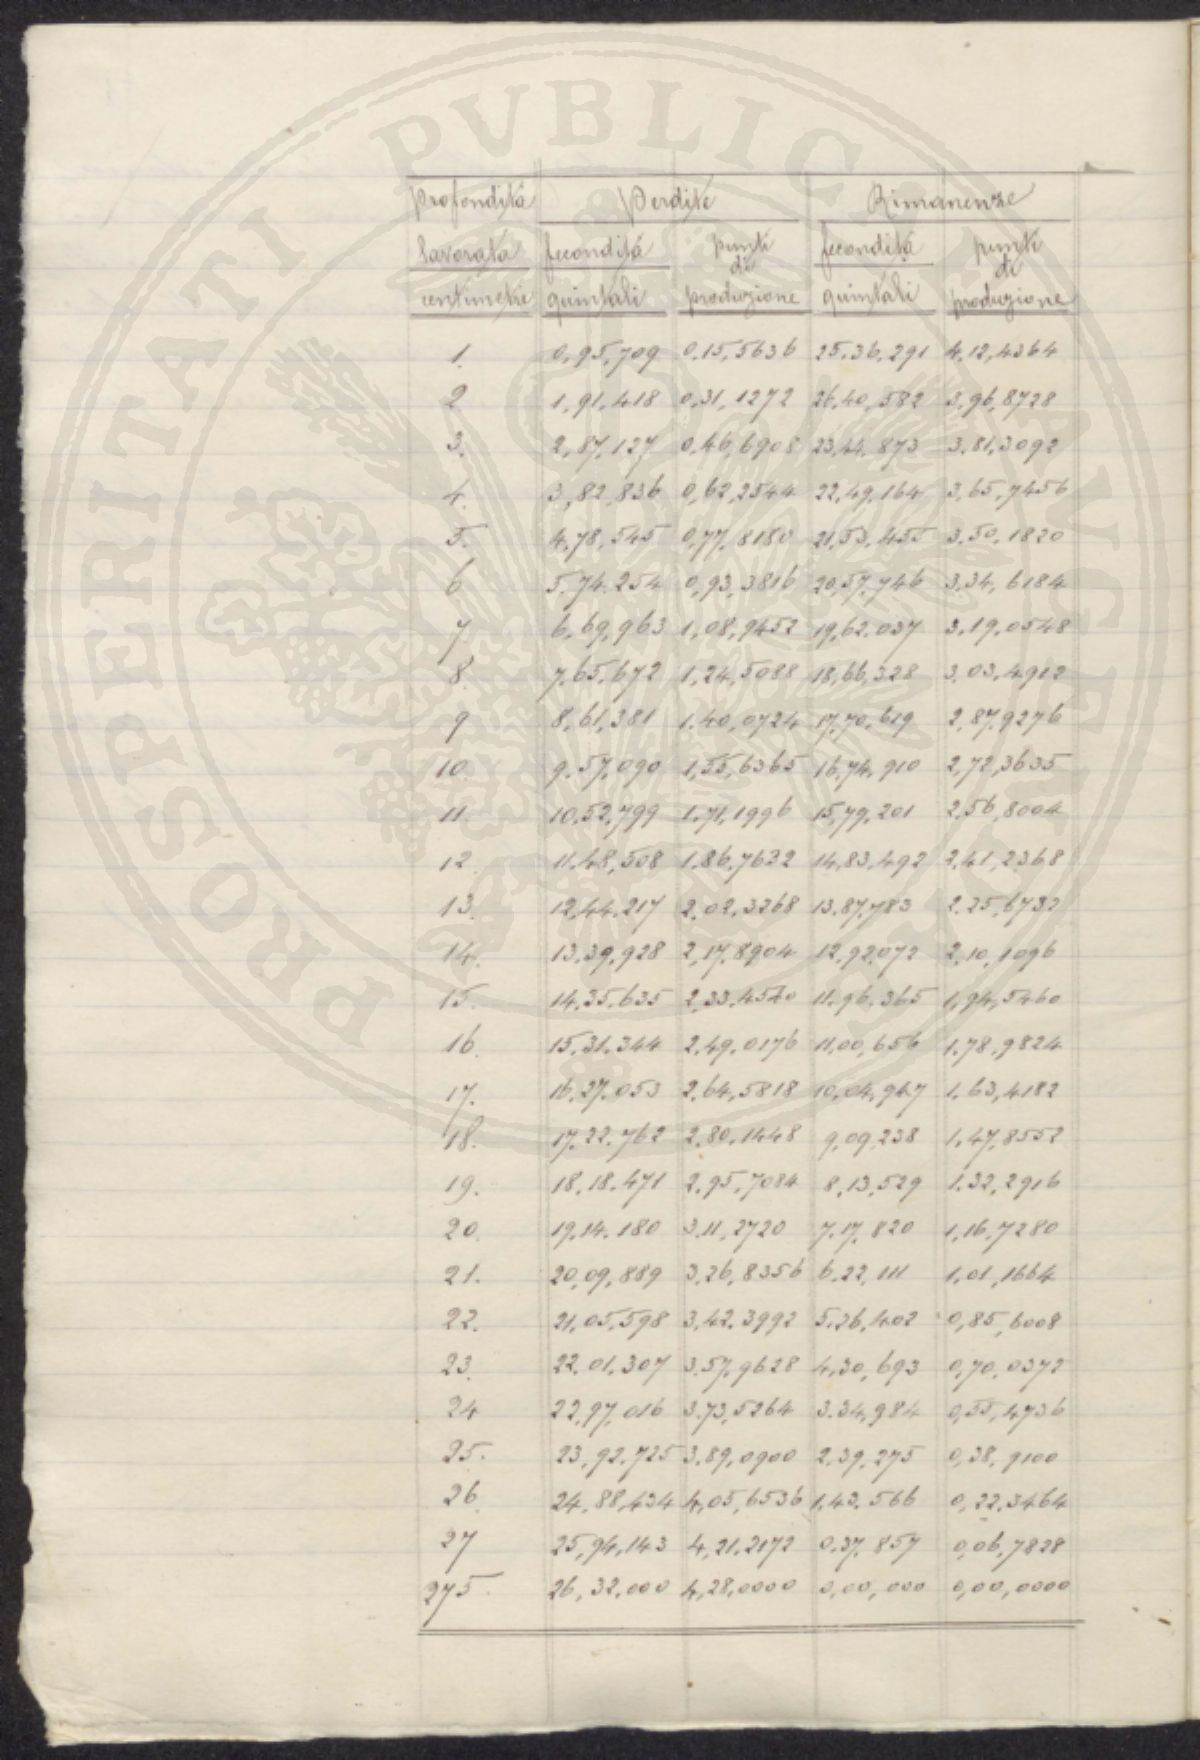 PROSPERITATI PUBLICAE AUGENDAE
Profondità Perdite Rimanenze
lavorata fecondità punti di fecondità punti di
centimetri quintali produzione quintali produzione
1. 0,95,709 0,15,5636 25,36,291 4,12,4364
2 1,91,418 0,31,1272 26,40,582 3,96,8728
3. 2,87,127 0,46,6908 23,44,873 3,81,3092
4. 3,82,836 0,62,2544 22,49,164 3,65,7456
5. 4,78,545 0,77,8180 21,53,455 3,50,1820
6 5,74,254 0,93,3816 20,57,746 3,34,6184
7. 6,69,963 1,08,9452 19,62,037 3,19,0548
8. 7,65,672 1,24,5088 18,66,328 3,03,4912
9 8,61,381 1.40,0724 17,70,619 2,87,9276
10. 9,57,090 1,55,6365 16,74,910 2,72,3635
11. 10,52,799 1,71,1996 15,79,201 2,56,8004
12. 11,48,508 1,86,7632 14,83,492 2,41,2368
13. 12,44,217 2,02,3268 13,87,783 2.25,6732
14. 13,39,928 2,17,8904 12,92,072 2,10,1096
15. 14,35,635 2,33,4540 11,96,365 1,94,5460
16. 15,31,344 2,49,0176 11,00,656 1,78,9824
17. 16,27,053 2,64,5818 10,04,947 1,63,4182
18. 17,22,762 2,80,1448 9,09,238 1,47,8552
19. 18,18,471 2,95,7084 8,13,529 1.32,2916
20. 19,14,180 3,11,2720 7,17,820 1,16,7280
21. 20,09,889 3,26,8356 6,22,111 1,01,1664
22. 21,05,598 3,42,3992 5,26,402 0,85,6008
23. 22,01,307 3,57,9628 4,30,693 0,70,0372
24 22,97,016 3,73,5264 3.34,984 0,55,4736
25. 23,92,725 3,89,0900 2,39,275 0,38,9100
26. 24,88,434 4,05,6536 1,43,566 0,22,3464
27 25,94,143 4,21,2172 0,37,857 0,06,7828
275. 26,32,000 4,28,0000 0,00,000 0,00,0000